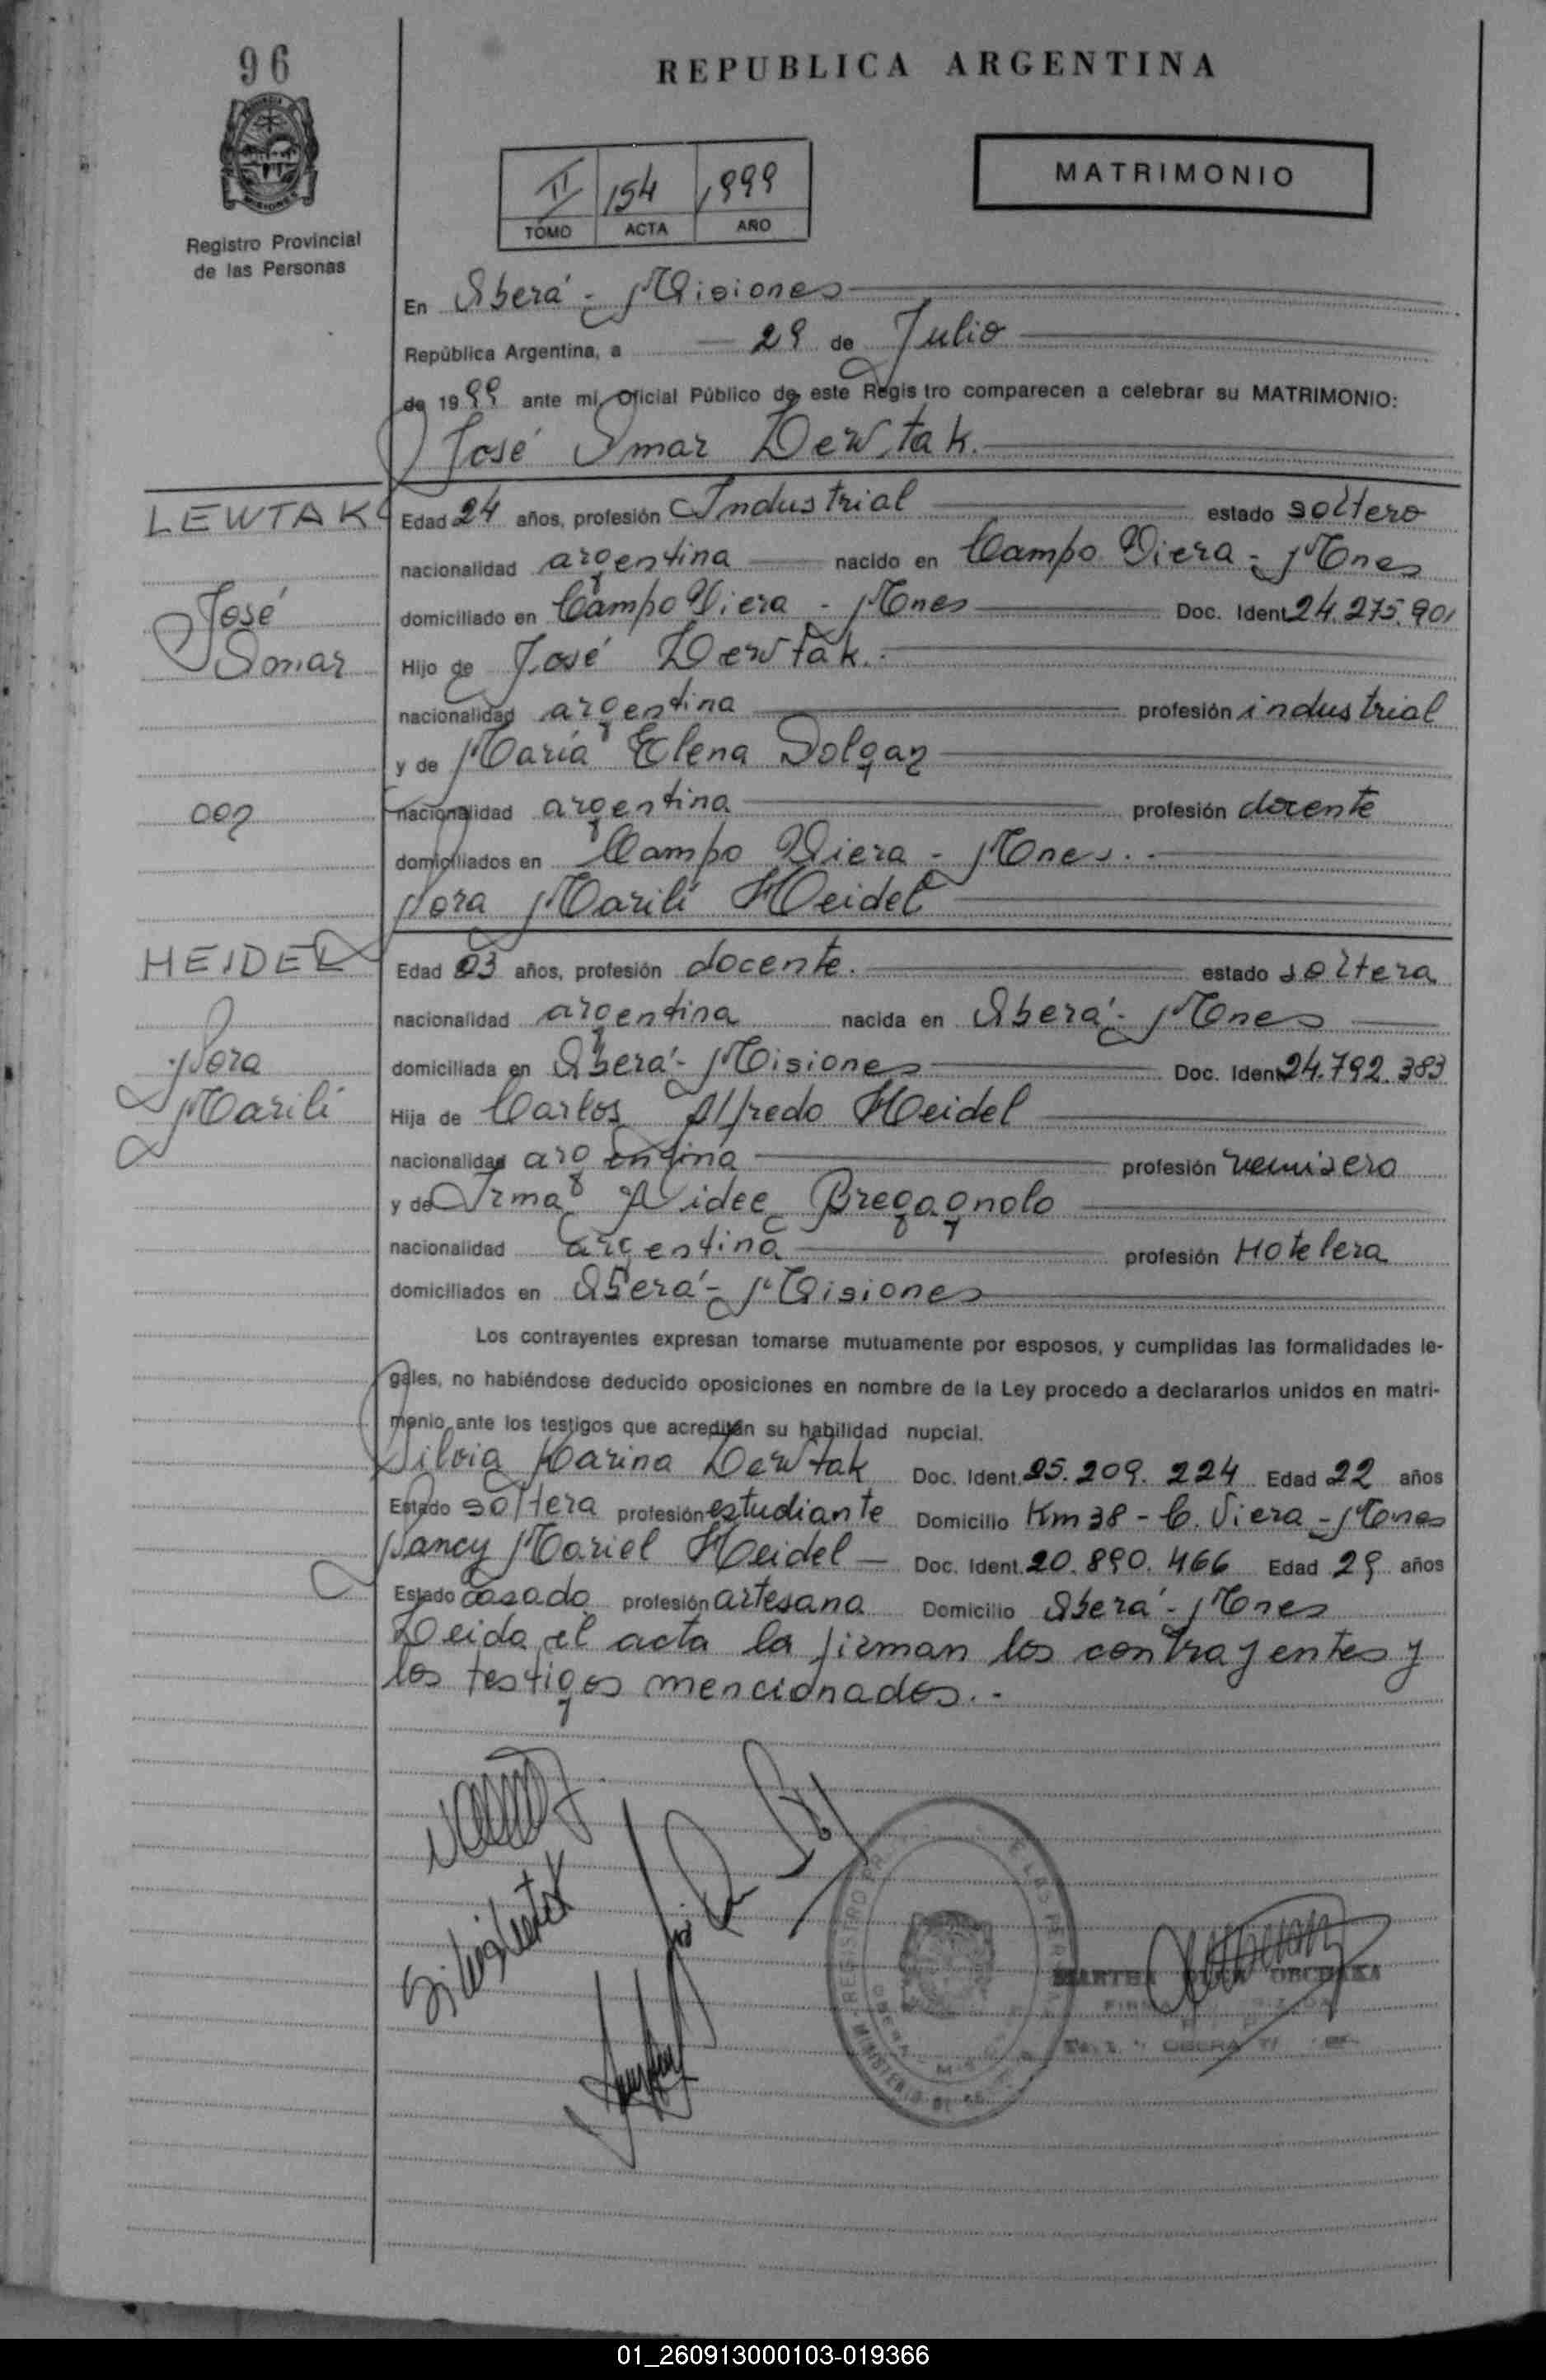 96
REPUBLICA ARGENTINA
Registro Provincial
de las Personas
II 154 1999
TOMO ACTA AÑO
MATRIMONIO
En Oberá - Misiones
República Argentina, a 29 de Julio
de 1999 ante mi, Oficial Público de este Registro comparecen a celebrar su MATRIMONIO:
José Omar Lewtak.
LEWTAK
José
Omar
007
Edad 24 años, profesión Industrial estado soltero
nacionalidad argentina nacido en Campo Viera - Mnes
domiciliado en Campo Viera - Mnes Doc. Ident. 24.275.901
Hijo de José Lewtak.
nacionalidad argentina profesión industrial
y de María Elena Dolgaz
nacionalidad argentina profesión docente
domiciliados en Campo Viera - Mnes.
Nora Marilí Heidel
HEIDEL
Nora
Marilí
Edad 23 años, profesión docente. estado soltera
nacionalidad argentina nacida en Oberá - Mnes
domiciliada en Oberá - Misiones Doc. Ident. 24.792.383
Hija de Carlos Alfredo Heidel
nacionalidad argentina profesión remisero
y de Irma Aidee Bregagnolo
nacionalidad argentina profesión Hotelera
domiciliados en Oberá - Misiones
Los contrayentes expresan tomarse mutuamente por esposos, y cumplidas las formalidades le-
gales, no habiéndose deducido oposiciones en nombre de la Ley procedo a declararlos unidos en matri-
monio ante los testigos que acreditan su habilidad nupcial.
Silvia Karina Lewtak Doc. Ident. 25.209.224 Edad 22 años
Estado soltera profesión estudiante Domicilio Km 38 - C. Viera - Mnes
Nancy Mariel Heidel Doc. Ident. 20.890.466 Edad 29 años
Estado casado profesión artesana Domicilio Oberá - Mnes
Leida el acta la firman los contrayentes y
los testigos mencionados.-
MARTHA OBCHAKA
OBERA
01_260913000103-019366